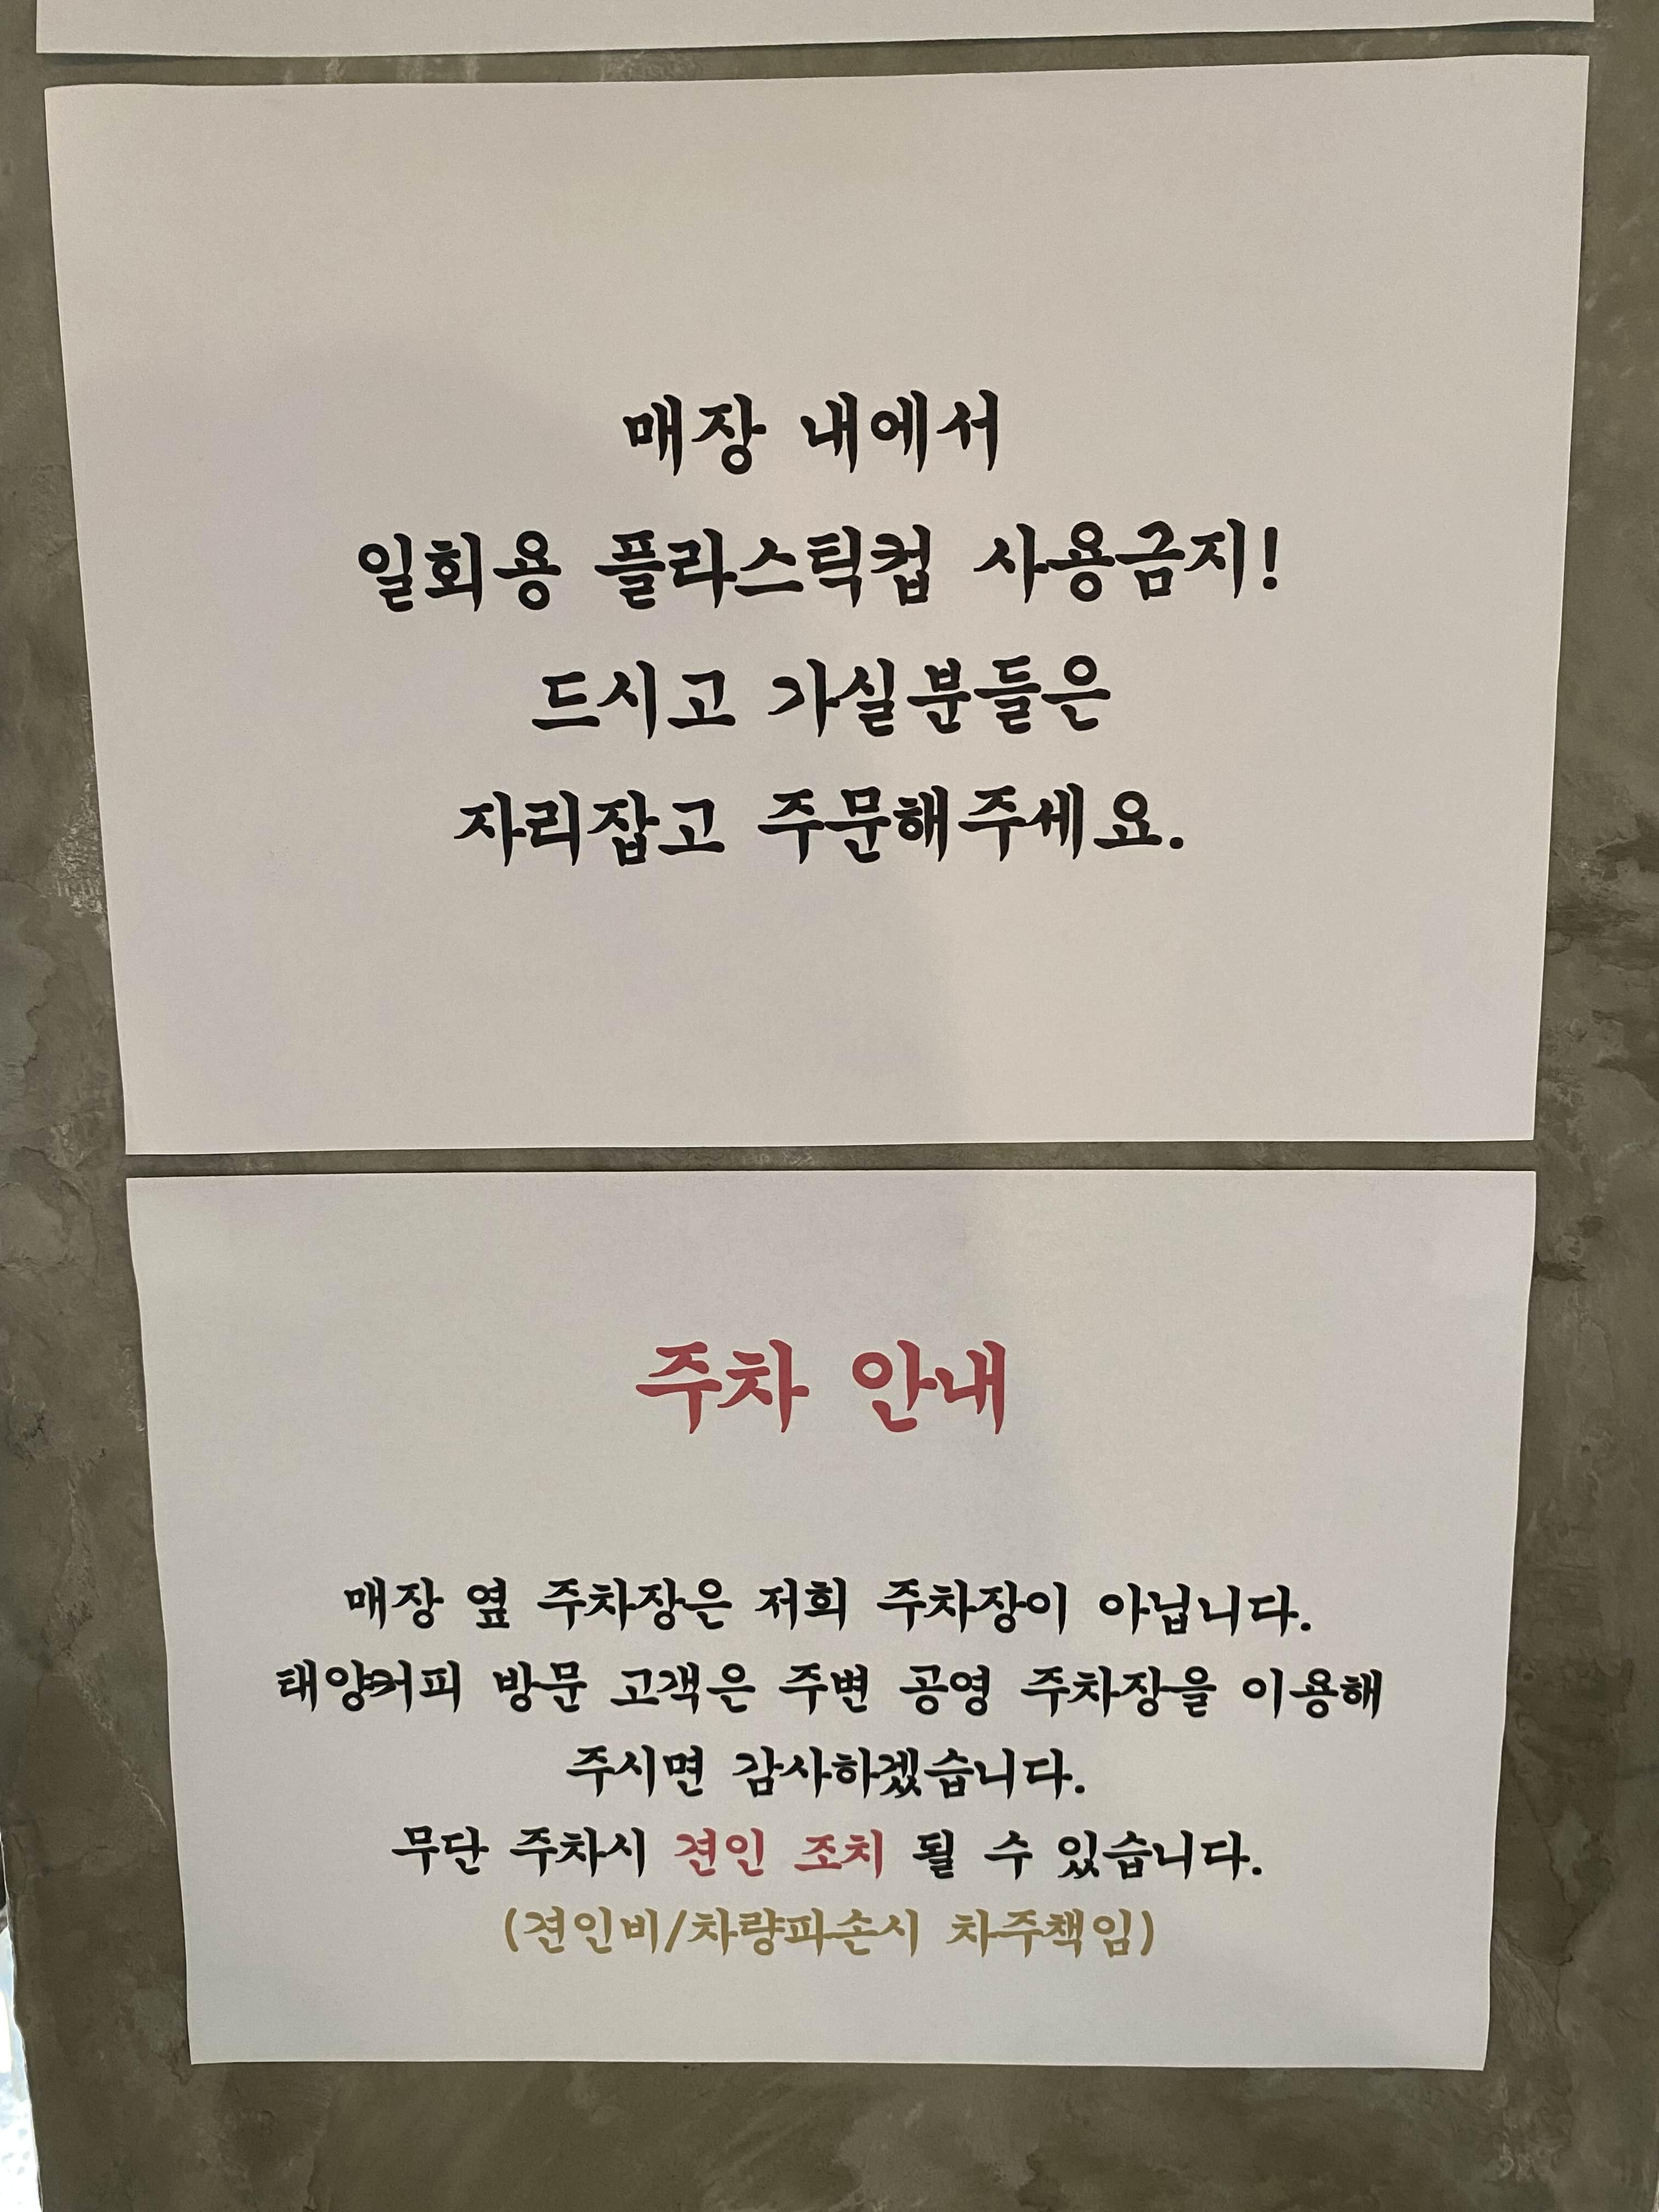 매장 내에서
일회용 플라스틱컵 사용금지!
드시고 가실분들은
자리잡고 주문해주세요.
주차 안내
매장 옆 주차장은 저희 주차장이 아닙니다.
태양커피 방문 고객은 주변 공영 주차장을 이용해
주시면 감사하겠습니다.
무단 주차시 견인 조치 될 수 있습니다.
(견인비/차량파손시 차주책임)